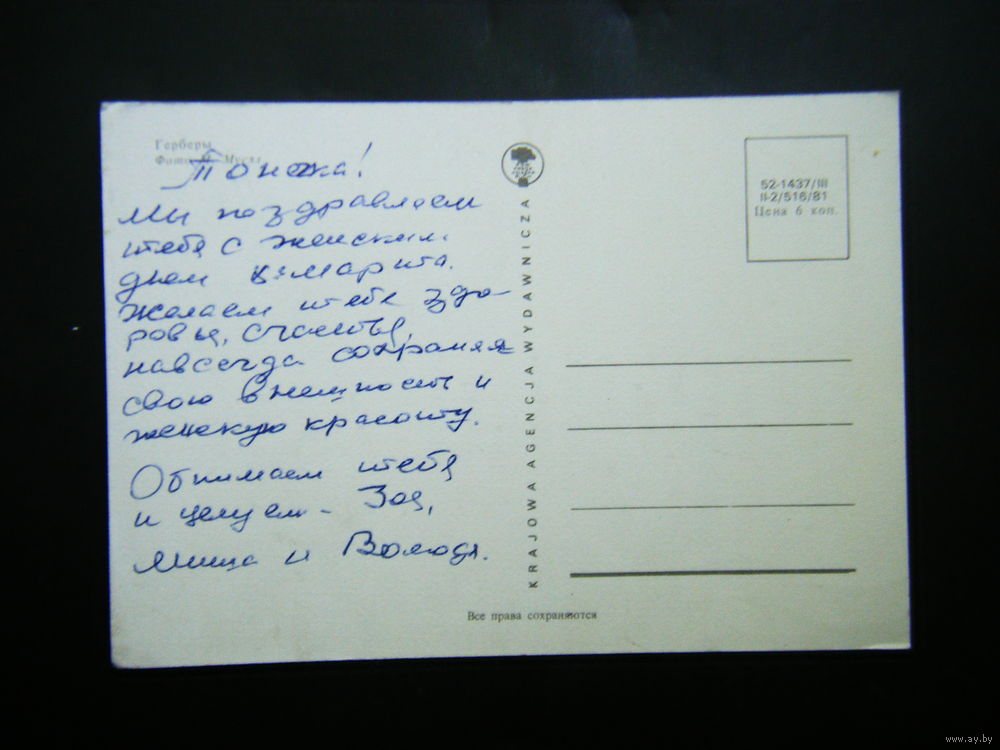 Герберы
Фото Мусял
Тонечка!
Ми поздравляем
тебя с женским
днем 8 марта.
Желаем тебе здо-
ровья, счастья,
навсегда сохраняя
свою внешность и
женскую красоту.
Обнимаем тебя
и целуем – Зоя,
Миша и Володя.
KRAJOWA AGENCJA WYDAWNICZA
52-1437/III
II-2/516/81
Цена 6 коп.
Все права сохраняются
www.ay.by